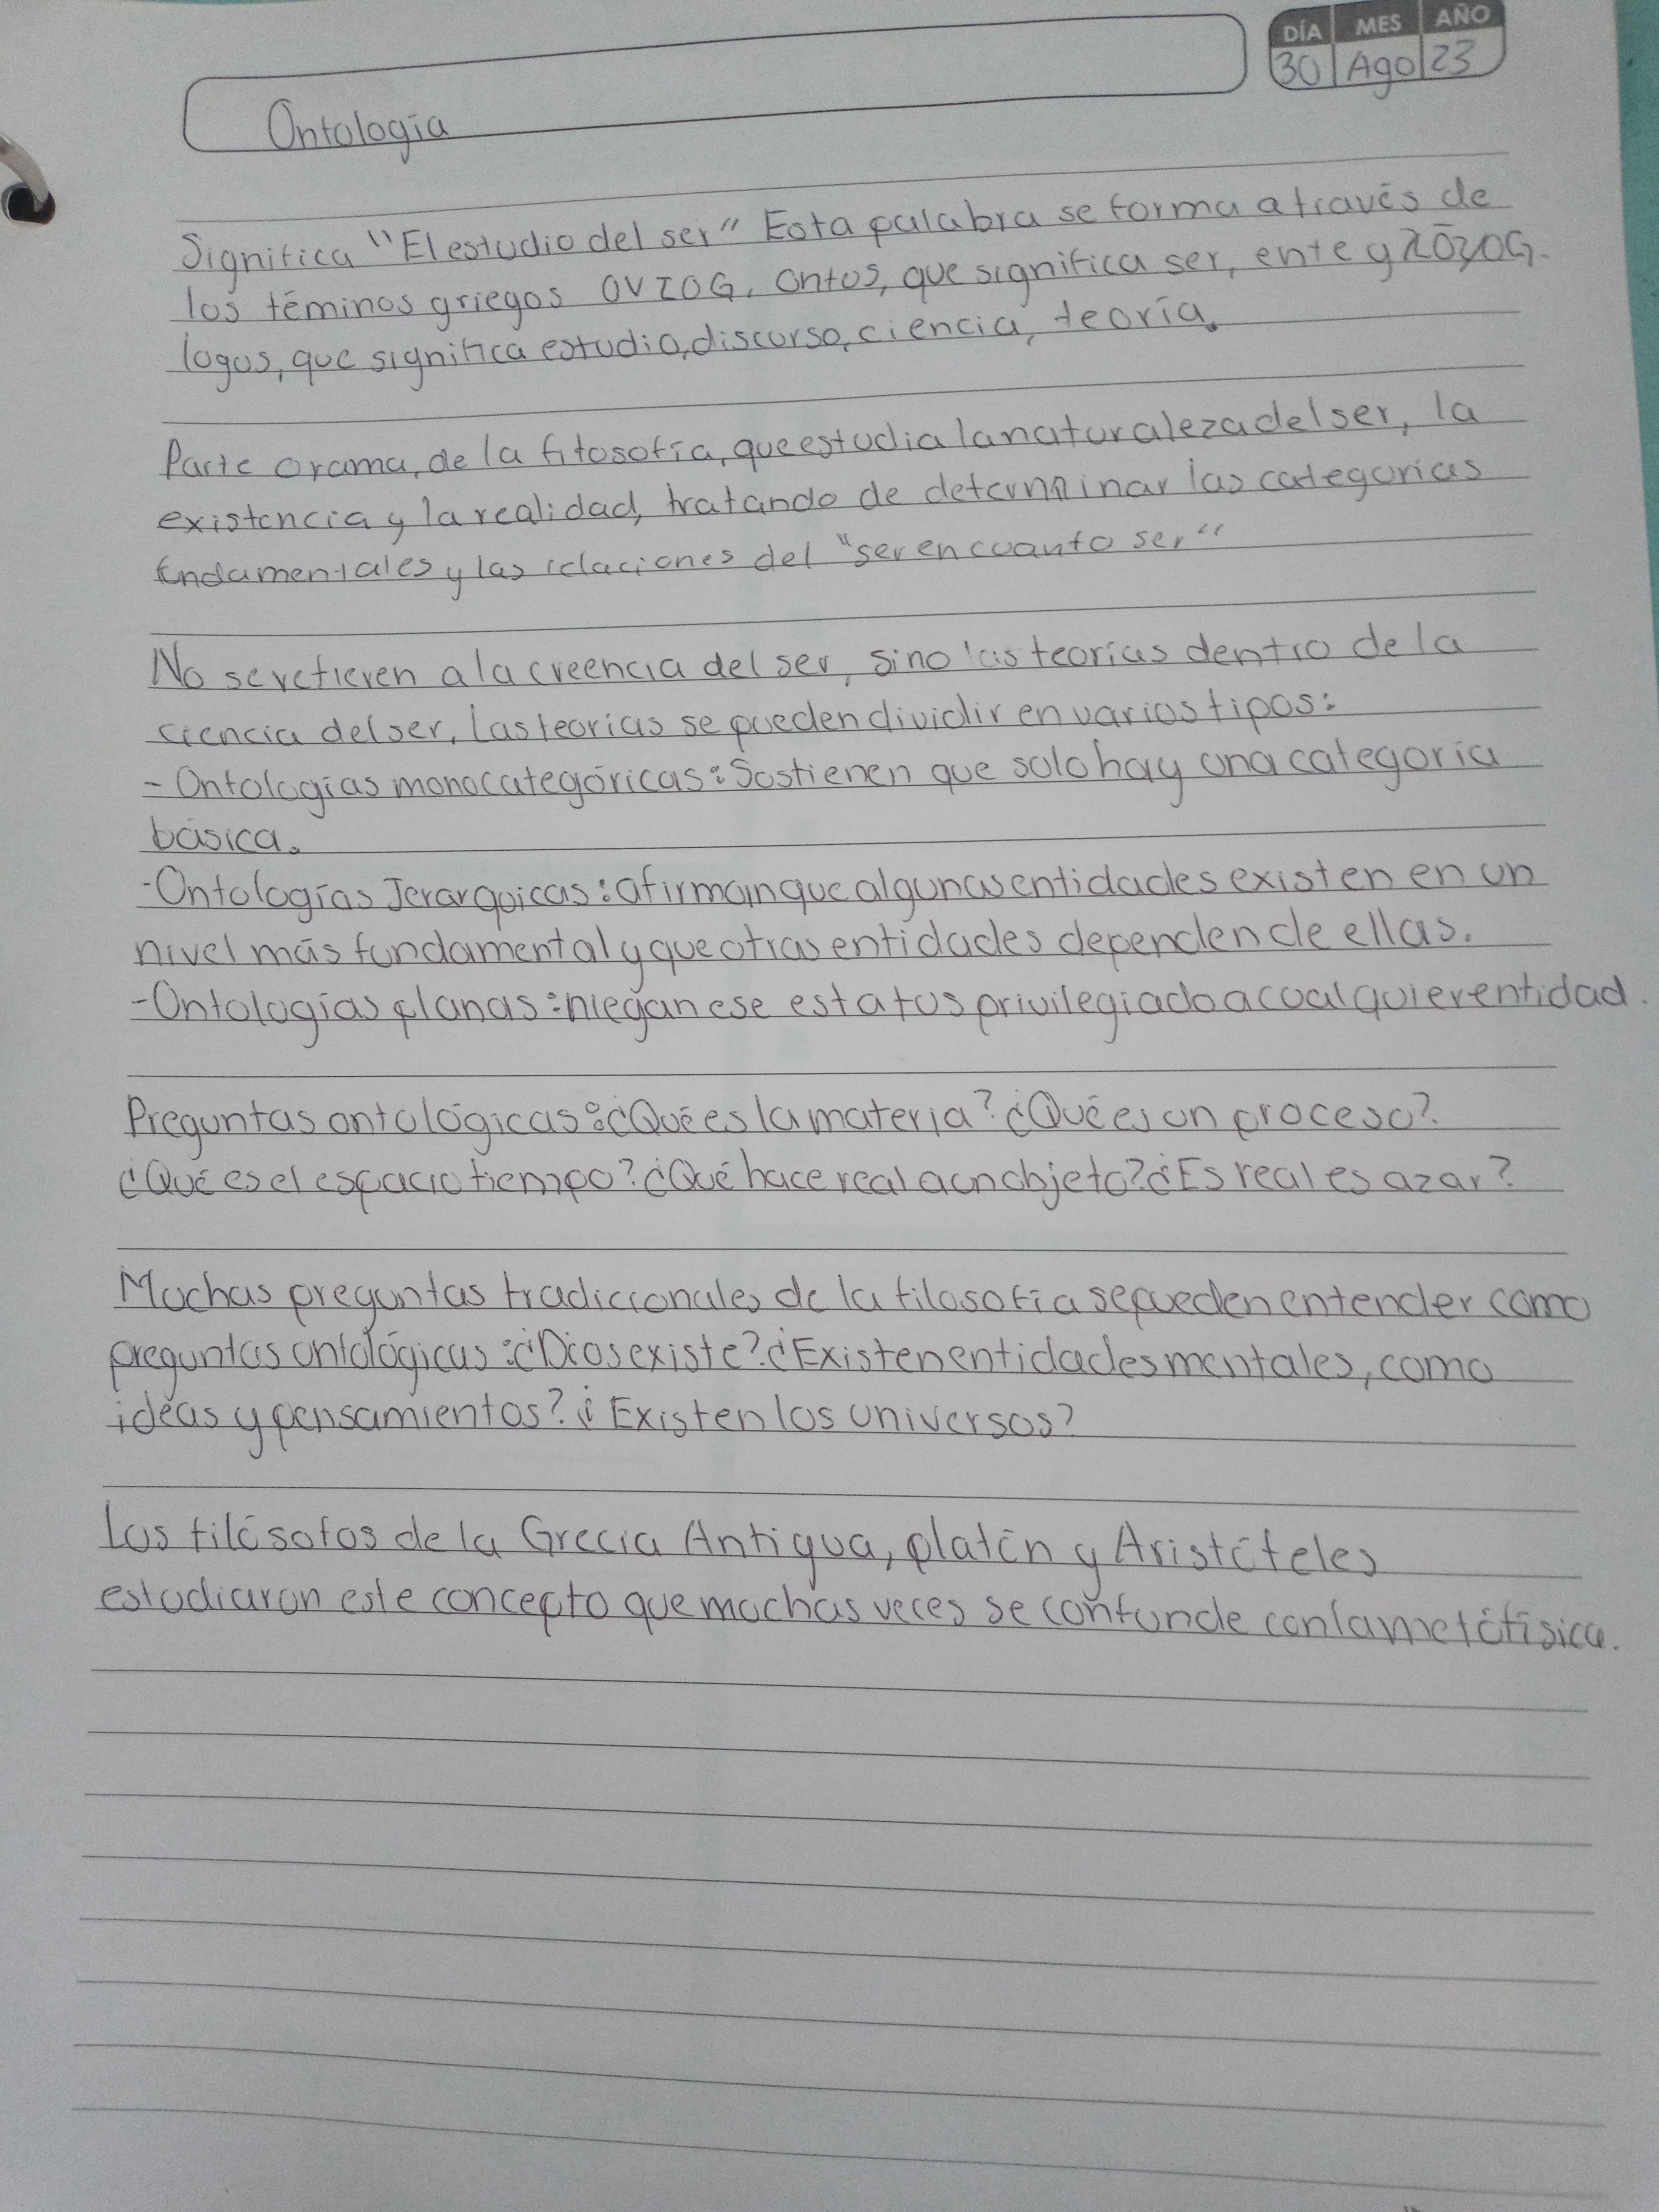 DÍA MES AÑO
30 Ago 23
Ontología
Significa "El estudio del ser" Esta palabra se forma a través de
los téminos griegos OVTOG, Ontos, que significa ser, ente y λóyOG.
logos, que significa estudio, discurso, ciencia, teoría.
Parte o rama, de la filosofía, que estudia la naturaleza del ser, la
existencia y la realidad, tratando de determinar las categorias
fundamentales y las relaciones del "ser en cuanto ser"
No se refieren a la creencia del ser, sino las teorías dentro de la
ciencia del ser. Las teorías se pueden dividir en varios tipos:
- Ontologías monocategóricas: Sostienen que solo hay una categoría
básica.
- Ontologías Jerarquicas: afirman que algunas entidades existen en un
nivel más fundamental y que otras entidades dependen de ellas.
- Ontologías planas: niegan ese estatus privilegiado a cualquier entidad.
Preguntas ontológicas: ¿Qué es la materia? ¿Qué es un proceso?
¿Qué es el espacio tiempo? ¿Qué hace real a un objeto? ¿Es real es azar?
Muchas preguntas tradicionales de la filosofía se pueden entender como
preguntas ontológicas: ¿Dios existe? ¿Existen entidades mentales, como
ideas y pensamientos? ¿Existen los universos?
Los filósofos de la Grecia Antigua, platón y Aristóteles
estudiaron este concepto que muchas veces se confunde con la metáfísica.